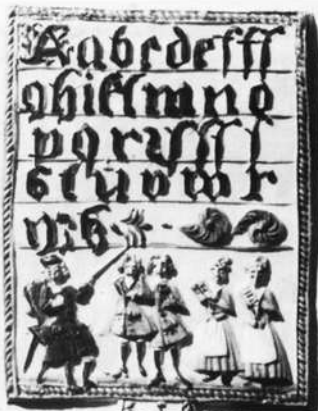 A a b c d e f ff
g h i k l m n o
p q r
s t u v w x
y z